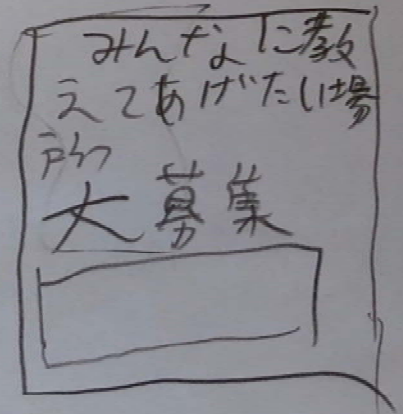 みんなに教
えてあげたい場
所
大募集